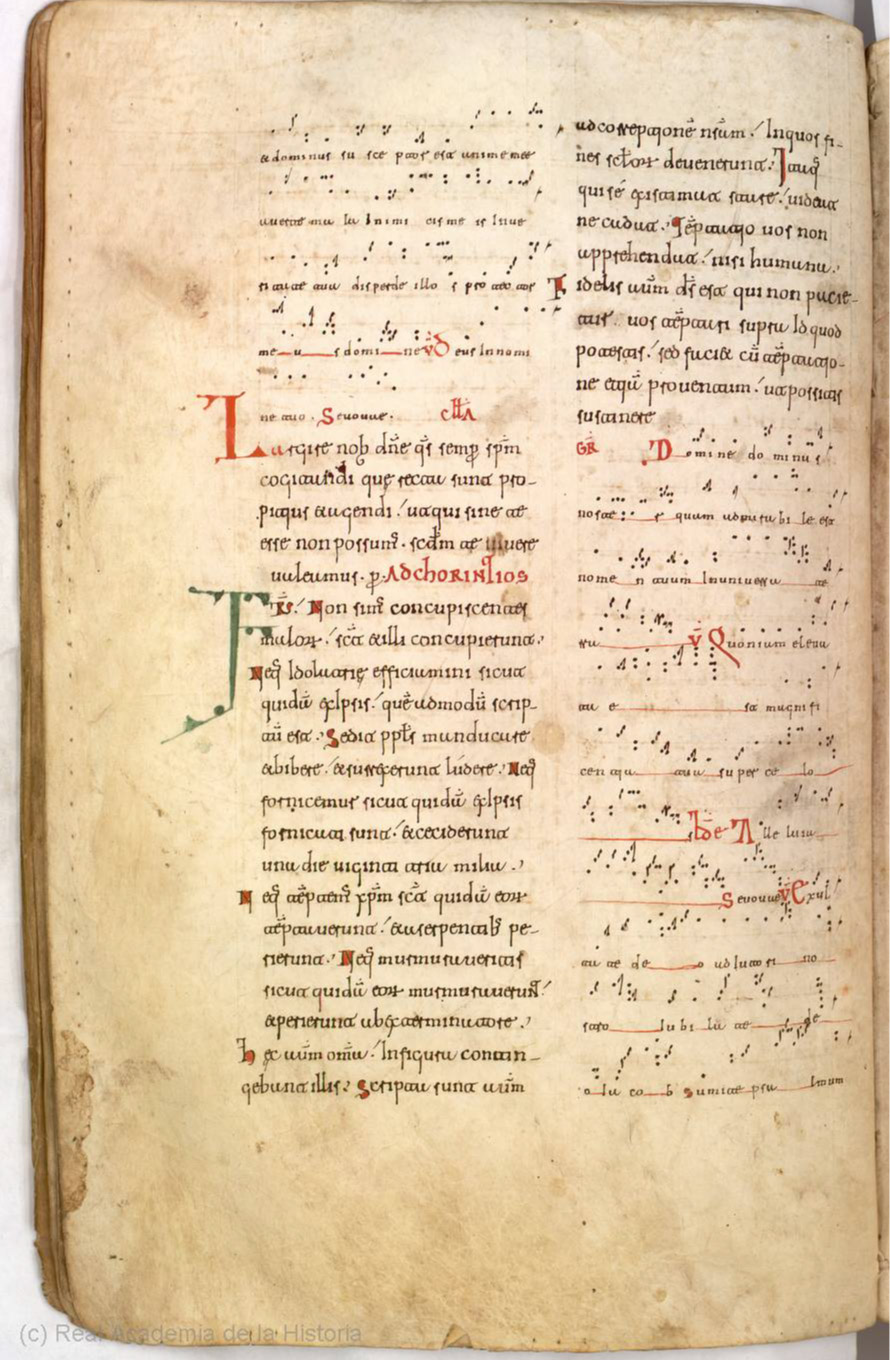 & dominus su sce ptor est anime mee
averte ma la Inimi cis me is Inve
ritate tua disperde illo s pro tec tor
me u s domi ne V̄ D eus Innomi
ne tuo . Sevovae . cłłA
Largire nob̄ dn̄e qs̄ semꝑ spm̄
cogitandi quę recta sunt pro-
pitius & agendi . ut qui sine te
esse non possum̄ . scd̄m te vivere
valeamus . p̄ . AD CHORINTIOS
FR̄S . Non sim̄ concupiscentes
malor̄ . sic̄ & illi concupierunt .
Neq̄ Idolatrię efficiamini sicut
quidā ex Ipsis . quēadmodū scrip-
tū est . Sedit ppl̄s manducare
& bibere . & surrexerunt ludere . Neq̄
fornicemur sicut quidā ex Ipsis
fornicati sunt . & ceciderunt
una die viginti tria milia .
Neq̄ tēptem̄ xpm̄ sic̄ quidā eor̄
tēptaverunt . & a serpentib̄ pe-
rierunt . Neq̄ murmuraveritis
sicut quidā eor̄ murmuraverun̄t .
& perierunt ab exterminatore .
Hęc aūm om̄a . Infigura contin-
gebant illis . Scripta sunt aūm
ad correptionē nsām . Inquos fi-
nes scl̄or̄ devenerunt . Itaq̄
qui sē existimat stare . videat
ne cadat . Tēptatio vos non
apprehendat . nisi humana .
Fidelis aūm ds̄ est qui non patie-
tur vos tēptari supra Id quod
potestis . sed faci& cū tēptatio-
ne etiā proventum . ut possitis
sustinere
GR̄ D omi ne do minu s
noste r quam admira bi le est
nome n tuum Inuniversa te
rra V̄ Quoniam eleva
ta e sta magnifi
cen tia tua super ce lo
s Alle luia
Sevovae V̄ Exul
ta te de o adiuto ri no
stro Iu bi la te de
o Ia co b sumite psa lmum
(c) Real Academia de la Historia